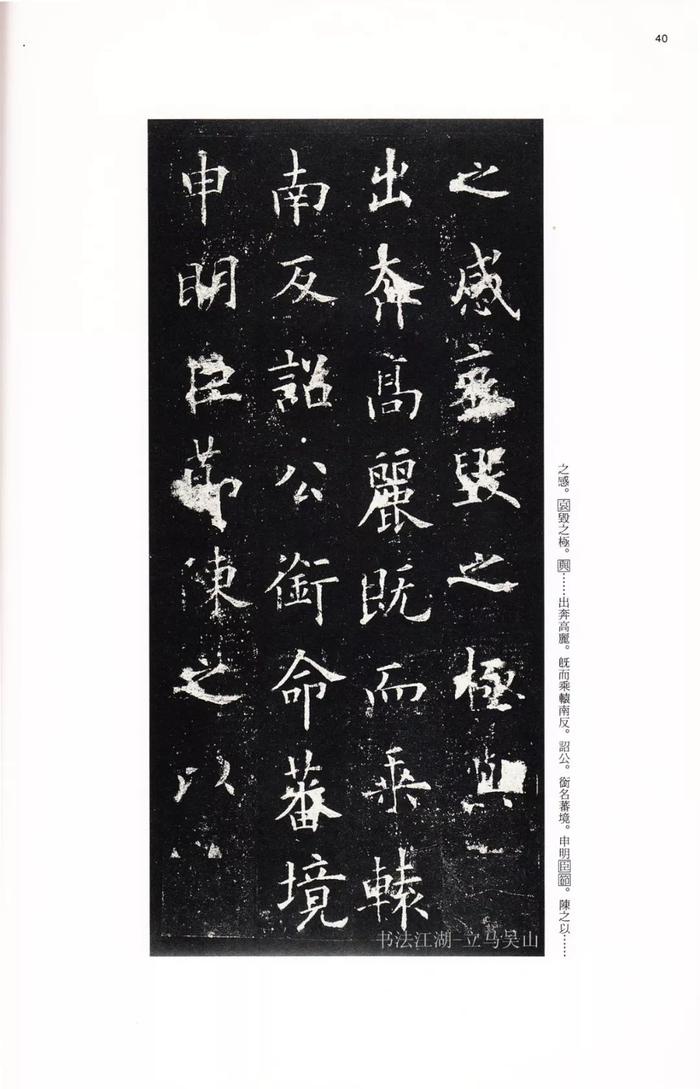 40
之感哀毀之極與
出奔高麗既而乘轅
南反詔公銜命蕃境
申明臣節陳之以
之感。哀毀之極。與……出奔高麗。旣而乘轅南反。詔公。銜名蕃境。申明臣節。陳之以……
书法江湖-立马吴山